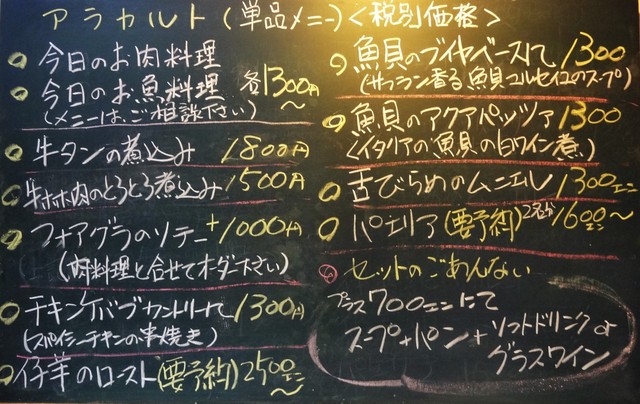 アラカルト(単品メニュー)<税別価格>
今日のお肉料理
今日のお魚料理 各1300円〜
(メニューは、ご相談下さい)
牛タンの煮込み 1800円
牛ホホ肉のとろとろ煮込み 1500円
フォアグラのソテー +1000円
(肉料理と合せてオーダー下さい)
チキンケバブカントリー 1300円
(スパイシーチキンの串焼き)
仔羊のロースト(要予約)2500エン〜
魚貝のブイヤベース 1300
(サフラン香る魚貝マルセイユのスープ)
魚貝のアクアパッツァ 1300
(イタリアの魚貝の白ワイン煮)
舌びらめのムニエル 1300エン
パエリア(要予約)2名分 1600エン〜
セットのごあんない
プラス700エンにて
スープ+パン+ソフトドリンクor
グラスワイン